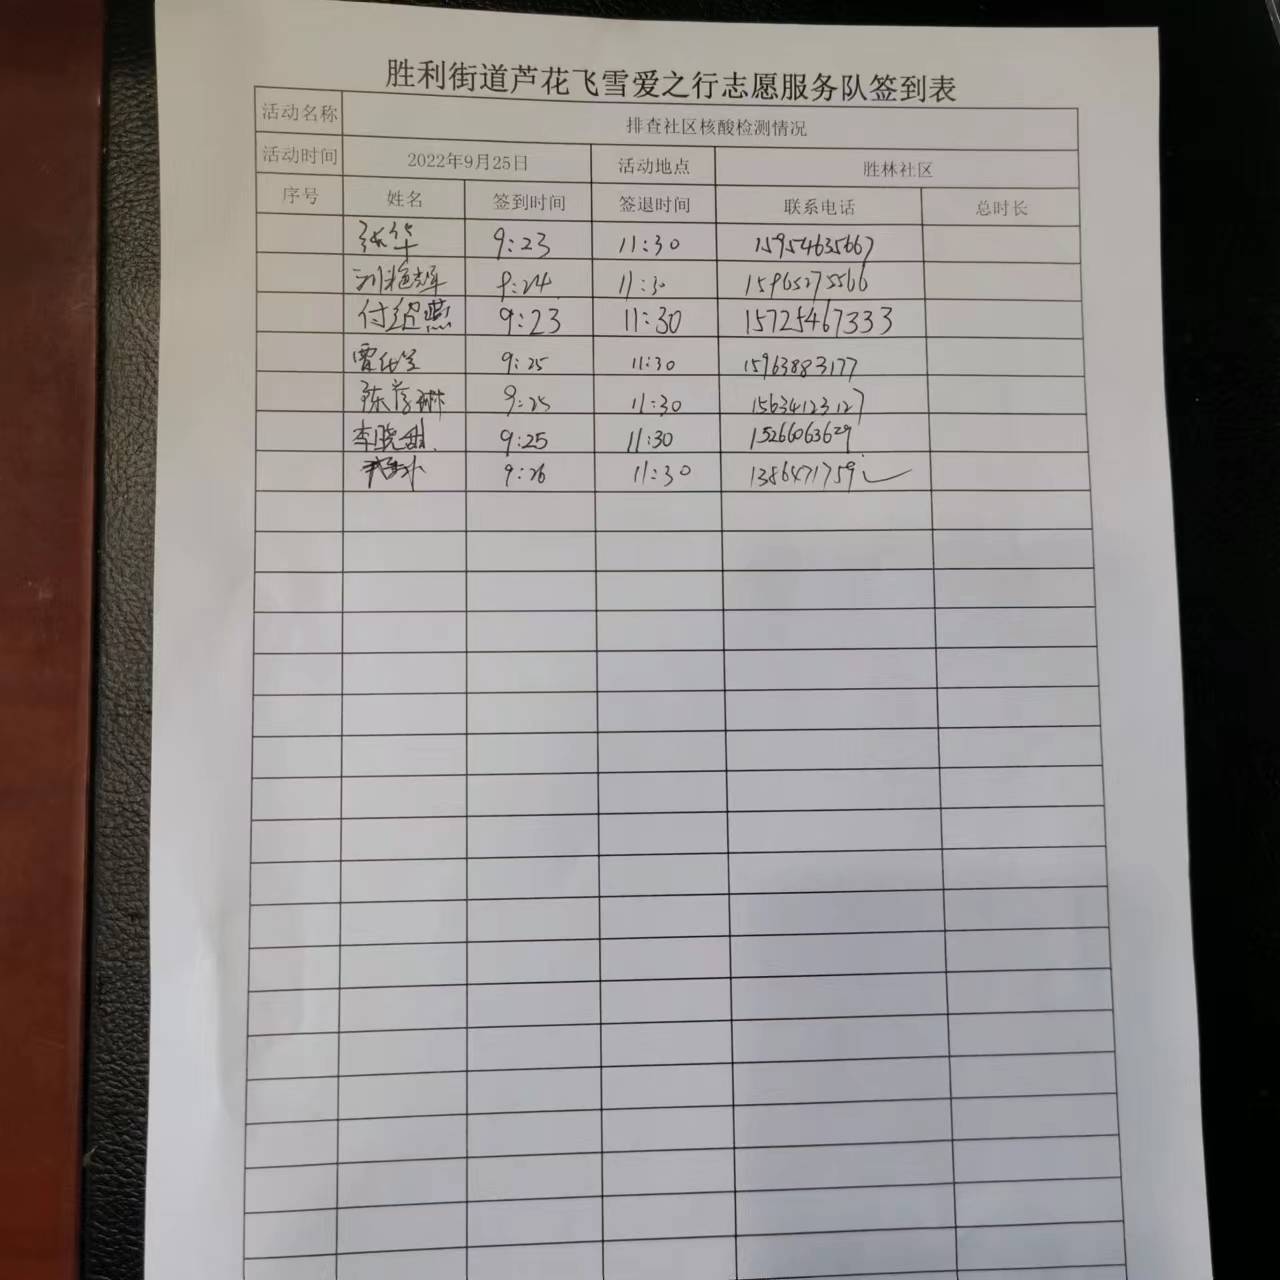 胜利街道芦花飞雪爱之行志愿服务队签到表
活动名称 排查社区核酸检测情况
活动时间 2022年9月25日 活动地点 胜林社区
序号 姓名 签到时间 签退时间 联系电话 总时长
张华 9:23 11:30 15954635667
刘艳辉 9:24 11:30 15965275566
付绍燕 9:23 11:30 15725467333
贾 9:25 11:30 15963883177
陈 琳 9:25 11:30 15634123127
李晓甜 9:25 11:30 15266063629
9:26 11:30